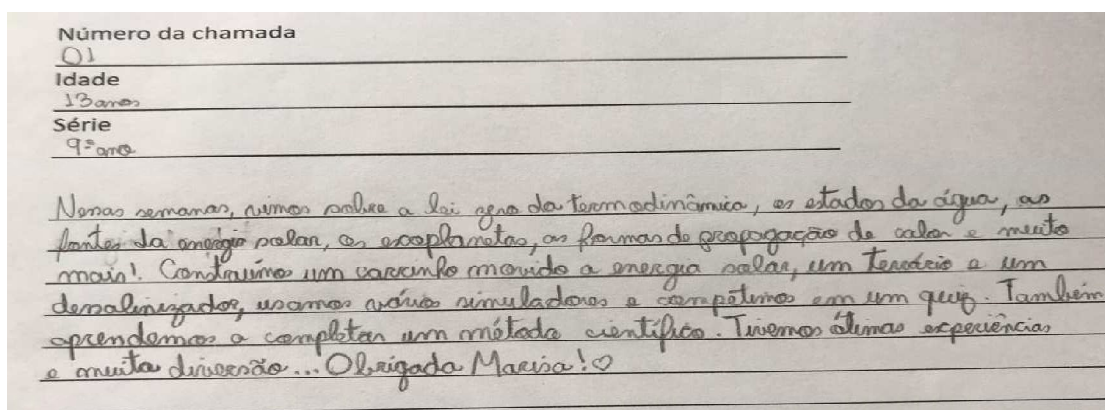 Número da chamada
01
Idade
13 anos
Série
9º ano
Nessas semanas, vimos sobre a lei zero da termodinâmica, os estados da água, as
fontes da energia solar, os exoplanetas, as formas de propagação de calor e muito
mais! Construímos um carrinho movido a energia solar, um e um
desalinizador, usamos vários simuladores e competimos em um quiz. Também
aprendemos a completar um método científico. Tivemos ótimas experiências
e muita diversão... Obrigada Marisa!♡